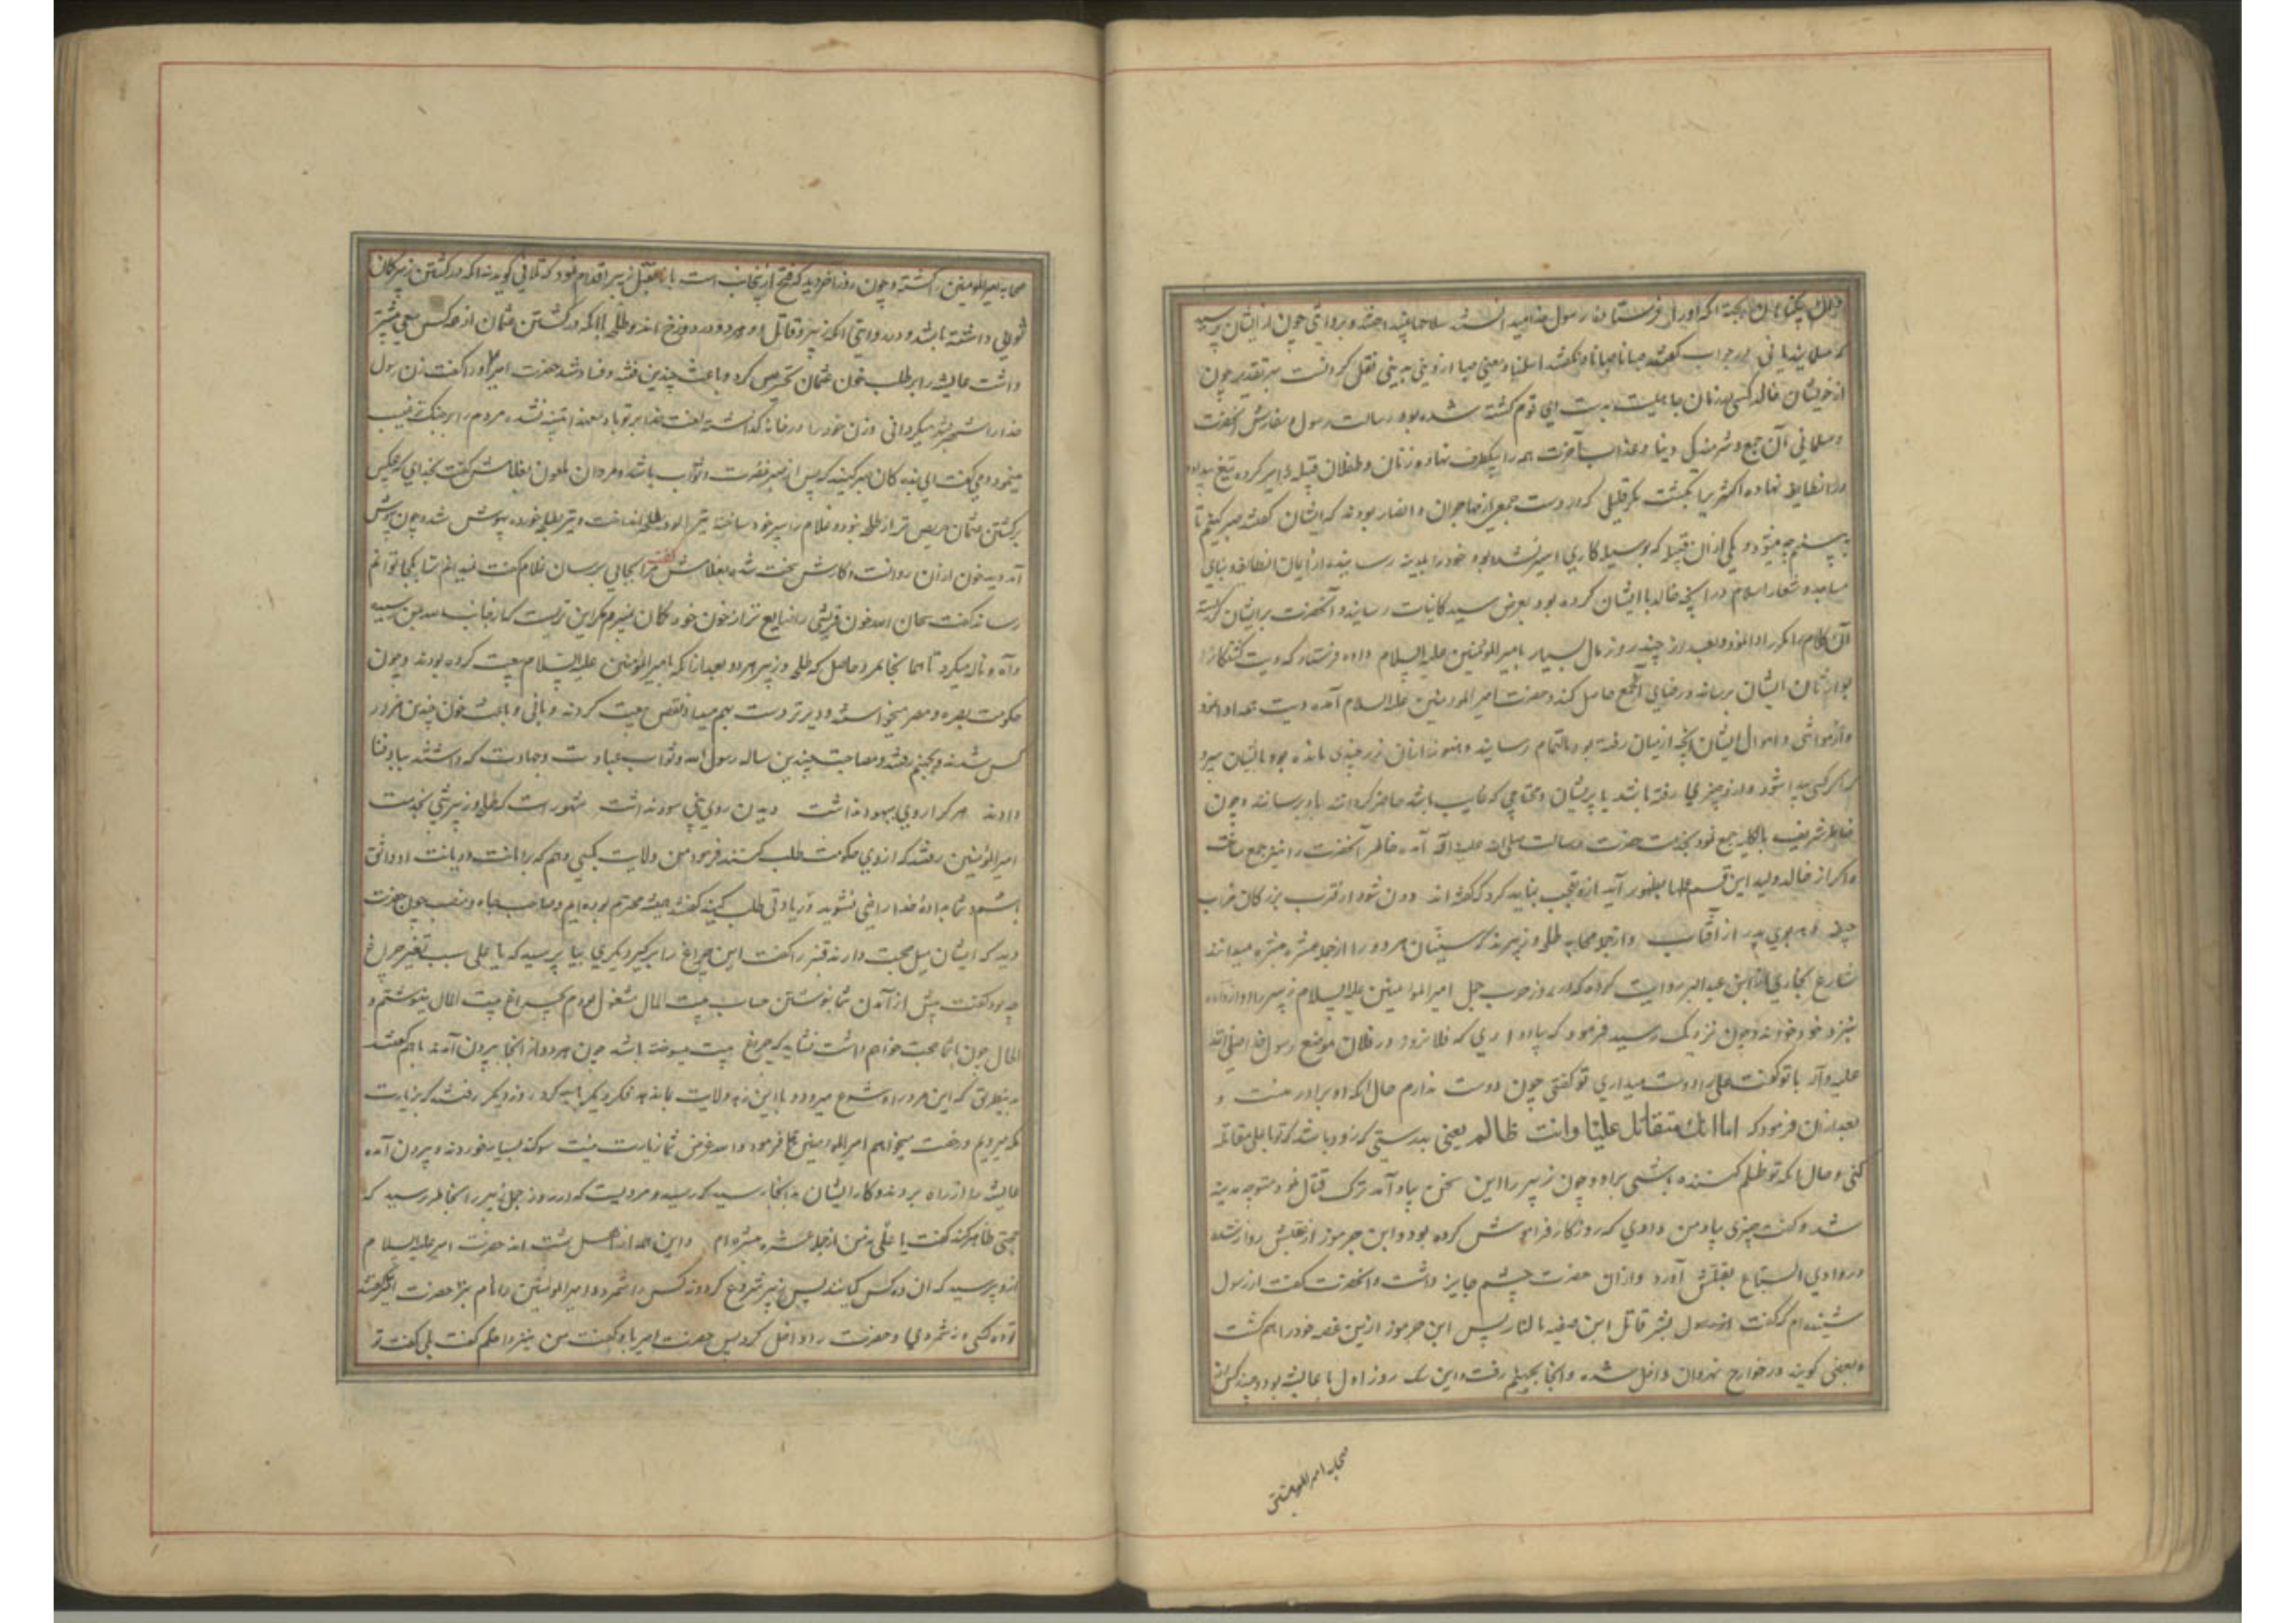 ایشان بجهة آنکه او را فرستاده رسول خدا میدانستند سلاحها بینداختند و بروایتی چون از ایشان پرسید
که مسلمانید یا نی در جواب گفتند صبانا صبانا و نگفتند اسلمنا و معنی صبا از دینی به دینی نقل کردنست بهر تقدیر چون
از خویشان خالد کسی در زمان جاهلیت بدست این قوم کشته شده بود رسالت رسول و سفارش آنحضرت
و مسلمانی آن جمع و شرمندگی دنیا و عذاب آخرت همه را بیکطرف نهاده زنان و طفلان قبیله را اسیر کرده تیغ بیداد
در انطایفه نهاده اکثر را بکشت مگر قلیلی که در دست جمعی از مهاجران و انصار بودند که ایشان گفتند صبر کنیم تا
ببینیم چه میشود و یکی از ان قبیله که بوسیله کاری اسیر نشده بود خود را بمدینه رسانیده از ایمان انطایفه و بنای
مساجد و شعار اسلام و آنچه خالد با ایشان کرده بود بعرض سید کاینات رسانید و آنحضرت بر ایشان گریسته
آن کلام را مکرر ادا نمود و بعد از چند روز مال بسیار بامیر المومنین علیه السلام داده فرستاد که دیت کشتگان را
بوارثان ایشان برساند و رضای آنجمع حاصل کند و حضرت امیر المومنین علیه السلام آمده دیت همه ادا نمود
و از مواشی و اموال ایشان آنچه از میان رفته بود بالتمام رسانید و هنوز از ان زر چیزی مانده بود بایشان سپرد
که اگر کسی پیدا شود و از و چیزی رفته باشد یا پریشان و محتاجی که غایب باشد حاضر گردد باو برسانند و چون
خاطر شریف بالکلیه جمع نمود بخدمت حضرت رسالت صلی الله علیه و آله آمده خاطر آنحضرت را نیز جمع ساخت
و اگر از خالد ولید این قسم عملها بظهور آید ازو تعجب نباید کرد که گفته اند دون شود از قرب بزرگان خراب
جیفه دهد بوی بد از آفتاب و از جمله صحابه طلحه و زبیرند که سنیان هر دو را از جمله عشره مبشره میدانند
شارح بخاری از ابن عبد البر روایت کرده که در روز حرب جمل امیر المومنین علیه السلام زبیر را آواز داده
بنزد خود خواند و چون نزدیک رسید فرمود که بیاد داری که فلانروز در فلان موضع رسول خدا صلی الله
علیه و آله با تو گفت علی را دوست میداری تو گفتی چون دوست ندارم حال آنکه او برادر منست و
بعد از ان فرمود که اما انک ستقاتل علینا وانت ظالم یعنی بدرستی که زود باشد که تو با علی مقاتله
کنی و حال آنکه تو ظلم کننده باشی بر او و چون زبیر را این سخن بیاد آمد ترک قتال نمود متوجه مدینه
شد و گفت چیزی بیاد من دادی که روزگار فراموش کرده بود و ابن جرموز از عقبش روان شده
در وادی السباع بقتلش آورد و ازان حضرت چشم جایزه داشت و آنحضرت گفت از رسول
شنیده ام که گفت بشر قاتل ابن صفیه بالنار پس ابن جرموز ازین غصه خود را هم کشت
و بعضی گویند در خوارج نهروان داخل شده و آنجا بجهنم رفت و این سک روز اول با عایشه بود و چند کس از
صحابه امیر المومنین
صحابه امیر المومنین را کشته و چون روز آخر دید که فتح ازینجانب است بقتل زبیر اقدام نمود که تلافی کرده باشد
ثوابی داشته باشد و در روایتی آنکه زبیر و قاتل او هر دو در دوزخ اند و طلحه با آنکه در کشتن عثمان از همه کس سعی بیشتر
داشت عایشه را بر طلب خون عثمان تحریص کرد و باعث چندین فتنه و فساد شد حضرت امیر او را گفت زن رسول
خدا را شهر بشهر میکردانی و زن خود را در خانه گذاشته لعنت خدا بر تو باد بعد از ان متنبه نشده مردم را بر جنک ترغیب
مینمود و می گفت ای بندگان صبر کنید که پس از صبر نصرت و ثواب باشد و مروان ملعون بغلامش گفت بخدای که هیچکس
بر کشتن عثمان حریص تر از طلحه نبود و غلام را سپر خود ساخته تیر زهر آلود بطلحه انداخت و تیر بطلحه خورده بیهوش شد و چون بهوش
آمد دید خون ازان روانست و کارش سخت شده بغلامش گفت مرا بجایی برسان غلام گفت نمیدانم شما را بکجا توانم
رساند گفت سبحان الله خون قریشی را ضایع تر از خون خود کمان نمیبرم مکر این تیریست که از جانب خدا بمن رسیده
و آه و ناله میکرد تا همانجا بمرد حاصل که طلحه و زبیر هر دو بعد از آنکه بامیر المومنین علیه السلام بیعت کرده بودند و چون
حکومت بصره و مصر میخواستند و دیرتر دست بهم میداد نقض بیعت کردند و یاغی و باعث خون چندین هزار
کس شدند و بجهنم رفتند و مصاحبت چندین ساله رسول الله و ثواب عبادت و جهادت که داشتند بباد فنا
دادند هر که را روی بهبود نداشت دیدن روی نبی سود نداشت مشهور است که طلحه و زبیر شبی بخدمت
امیر المومنین رفتند که ازوی حکومت طلب کنند فرمود من ولایت بکسی دهم که بر امانت و دیانت او واثق
باشم و شما بداده خدا راضی نشوید و زیادتی طلب کنید گفتند همیشه محترم بوده ایم و صاحب جاه و منصب چون حضرت
دید که ایشان میل صحبت دارند قنبر را گفت این چراغ را برگیر و دیگری بیار پرسیدند که یا علی سبب تغییر چراغ
چه بود گفت پیش از آمدن شما بنوشتن حساب بیت المال مشغول بودم چراغ بیت المال میسوختم و
الحال چون با شما صحبت خواهم داشت نشاید که چراغ بیت میسوخته باشد چون هر دو از آنجا بیرون آمدند با هم گفتند
بدینطریق که این مرد براه شرع میرود و با این زهد ولایت بما ندهد فکر دیگر باید کرد روز دیگر رفتند که بزیارت
مکه میرویم و رخصت میخواهیم امیر المومنین فرمود والله غرض شما زیارت نیست سوکند بسیار خوردند و بیرون آمده
عایشه را از راه بردند و کار ایشان بدانجا رسید که رسید و مرویست که در روز جمل زبیر را بخاطر رسید که
حجتی ظاهر کند گفت یا علی نه من از جمله عشره مبشره ام و این همه از اهل بهشت اند حضرت امیر علیه السلام
ازو پرسید که ان ده کس کیانند پس زبیر شروع کرد و نه کس را شمرد و امیر المومنین را نام برد حضرت امیر گفت
تو نه کس شمردی و حضرت را داخل کرد پس حضرت امیر باو گفت من نیز داخلم گفت بلی گفت تو